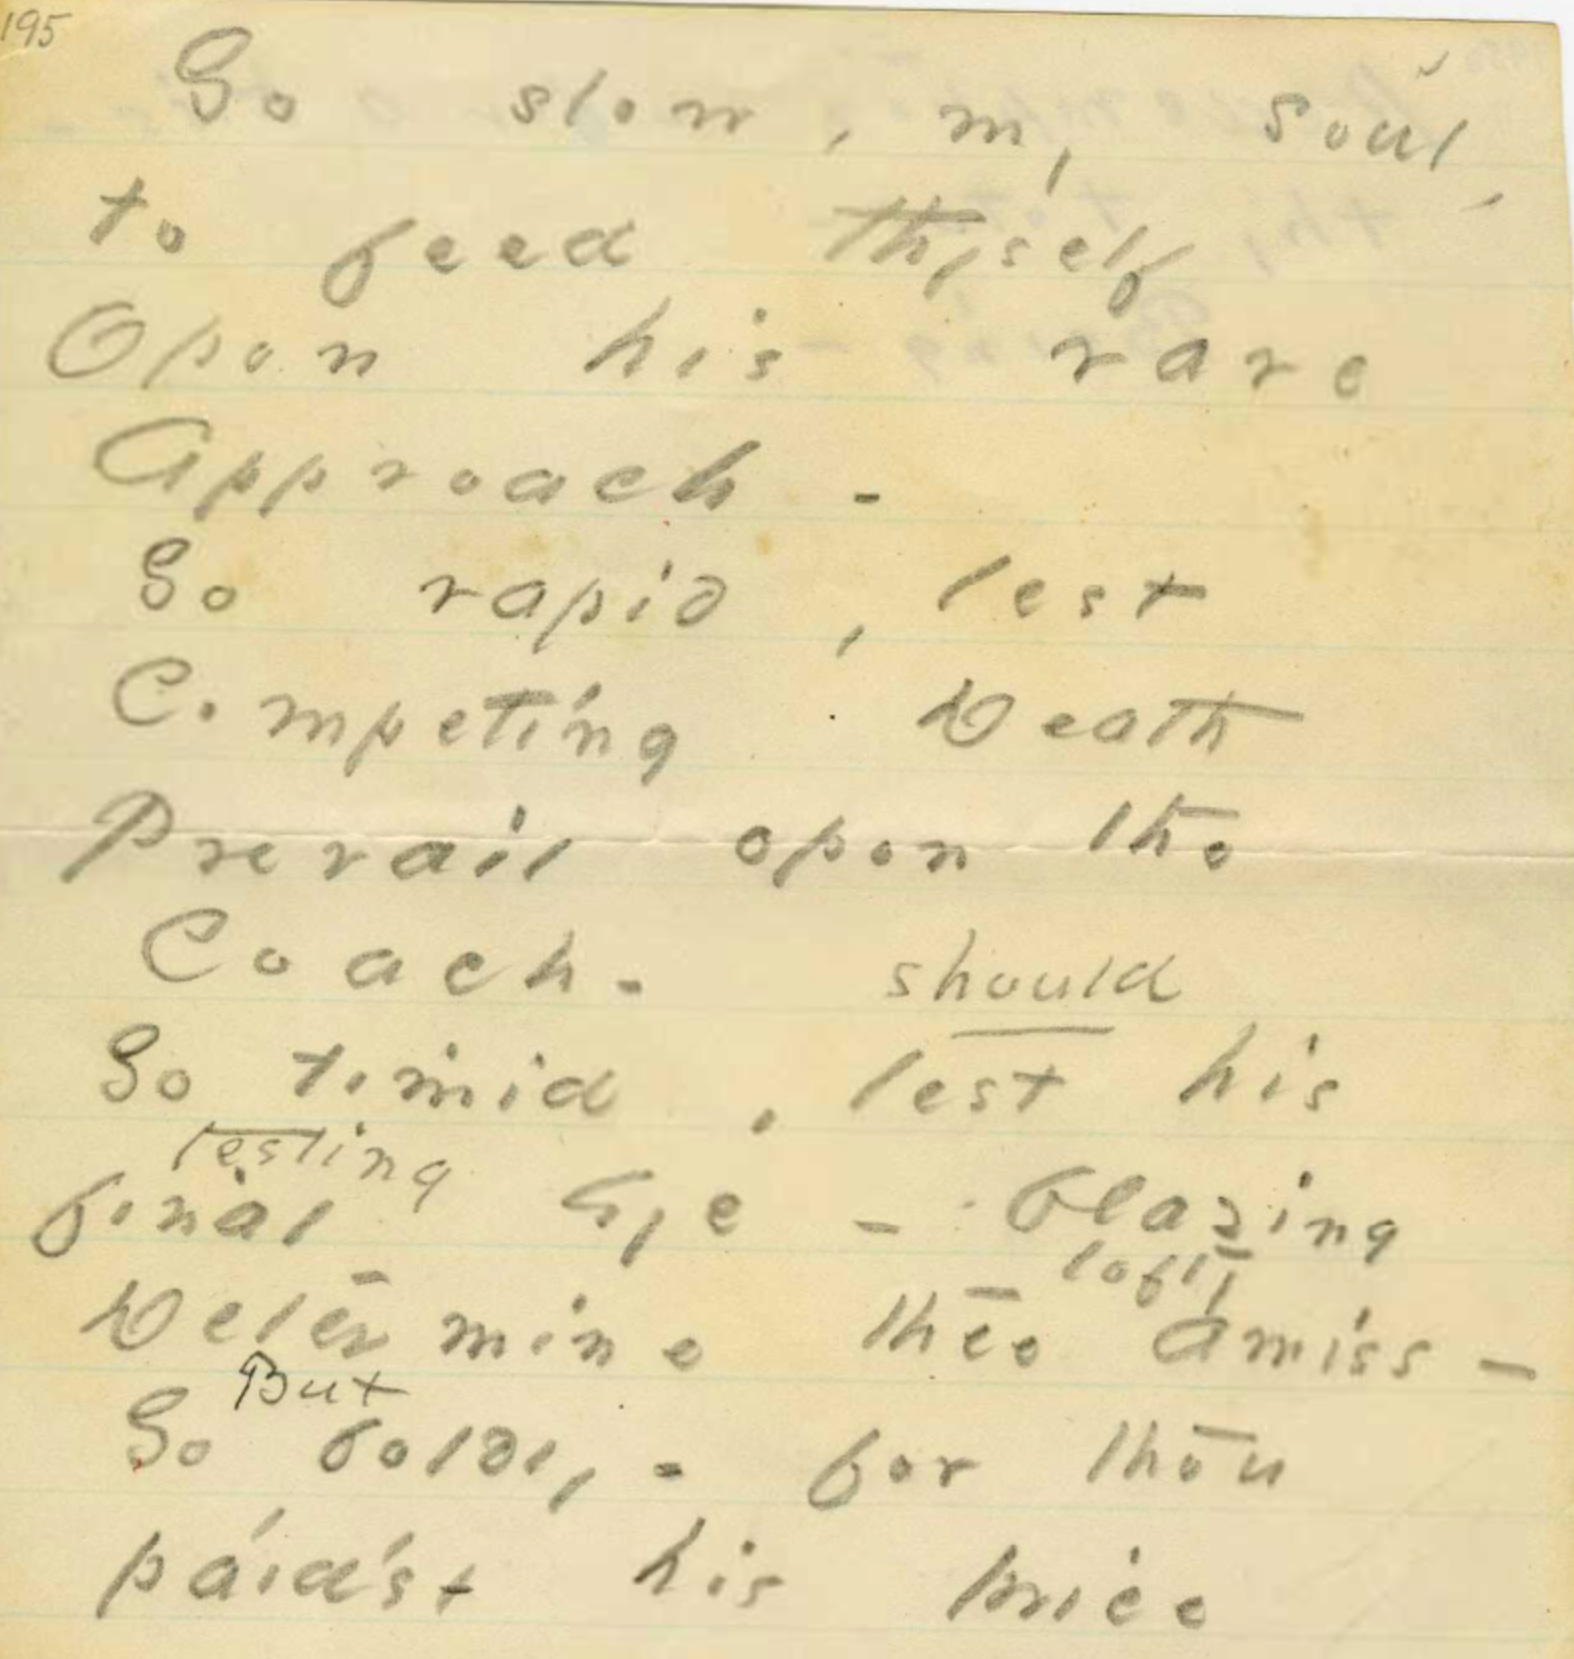 195
Go slow, my soul,
to feed thyself
Upon his rare
Approach -
Go rapid, lest
Competing Death
Prevail upon the
Coach -
should
Go timid, lest his
testing
final Eye - blazing
lofty
Determine thee amiss -
But
Go boldly - for thou
paid'st his price